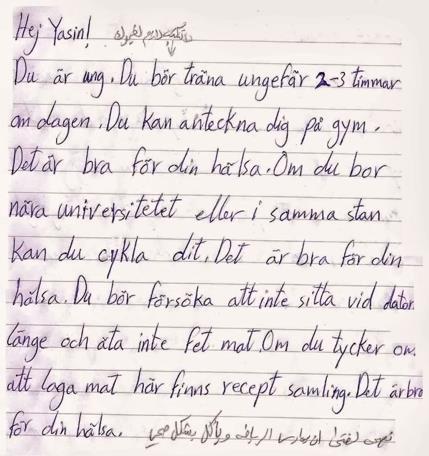 Hej Yasin!
Du är ung. Du bör träna ungefär 2-3 timmar
om dagen. Du kan anteckna dig på gym.
Det är bra för din hälsa. Om du bor
nära universitetet eller i samma stan
kan du cykla dit. Det är bra för din
hälsa. Du bör försöka att inte sitta vid dator
länge och äta inte fet mat. Om du tycker om
att laga mat här finns recept samling. Det är bra
för din hälsa. ان يمارس الرياضة و يأكل بشكل صحي